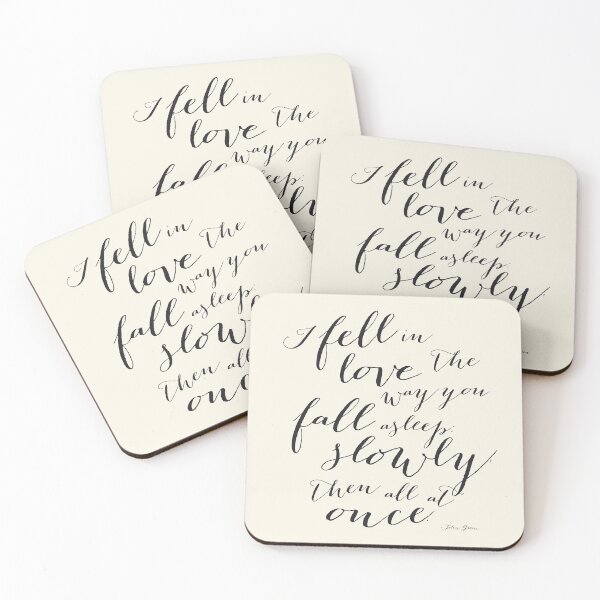 I fell in
love The
way you
fall asleep:
I fell in
love The
way you
fall asleep:
slowly,
I fell in
love The
way you
fall asleep:
slowly
Then all
once
I fell in
love The
way you
fall asleep:
slowly,
Then all at
once.
John Green